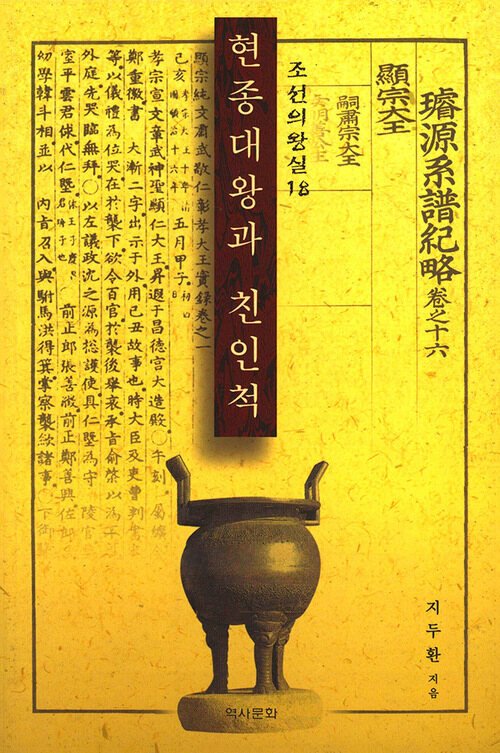 璿源系譜紀略 卷之十六
顯宗大王
嗣肅宗大王
조선의 왕실 18
현종대왕과 친인척
顯宗純文肅武敬仁彰孝大王實錄卷之一
己亥 五月甲子
孝宗宣文章武神聖顯仁大王昇遐于昌德宮大造殿○午刻 屬纊
鄭重徽書 大漸二字出示于外用己丑故事也時大臣及吏曹判書
等以儀禮為位哭在於襲下欲令百官於襲後舉哀承旨俞棨以為于
外庭先哭臨無拜○以左議政沈之源為摠護使具仁墍為守 陵官
室平雲君俅代仁墍 前正郎張善瀓前正鄭善興佐郎
幼學韓斗相並以 內旨召入與駙馬洪得箕掌察襲斂諸事○下御
지두환 지음
역사문화